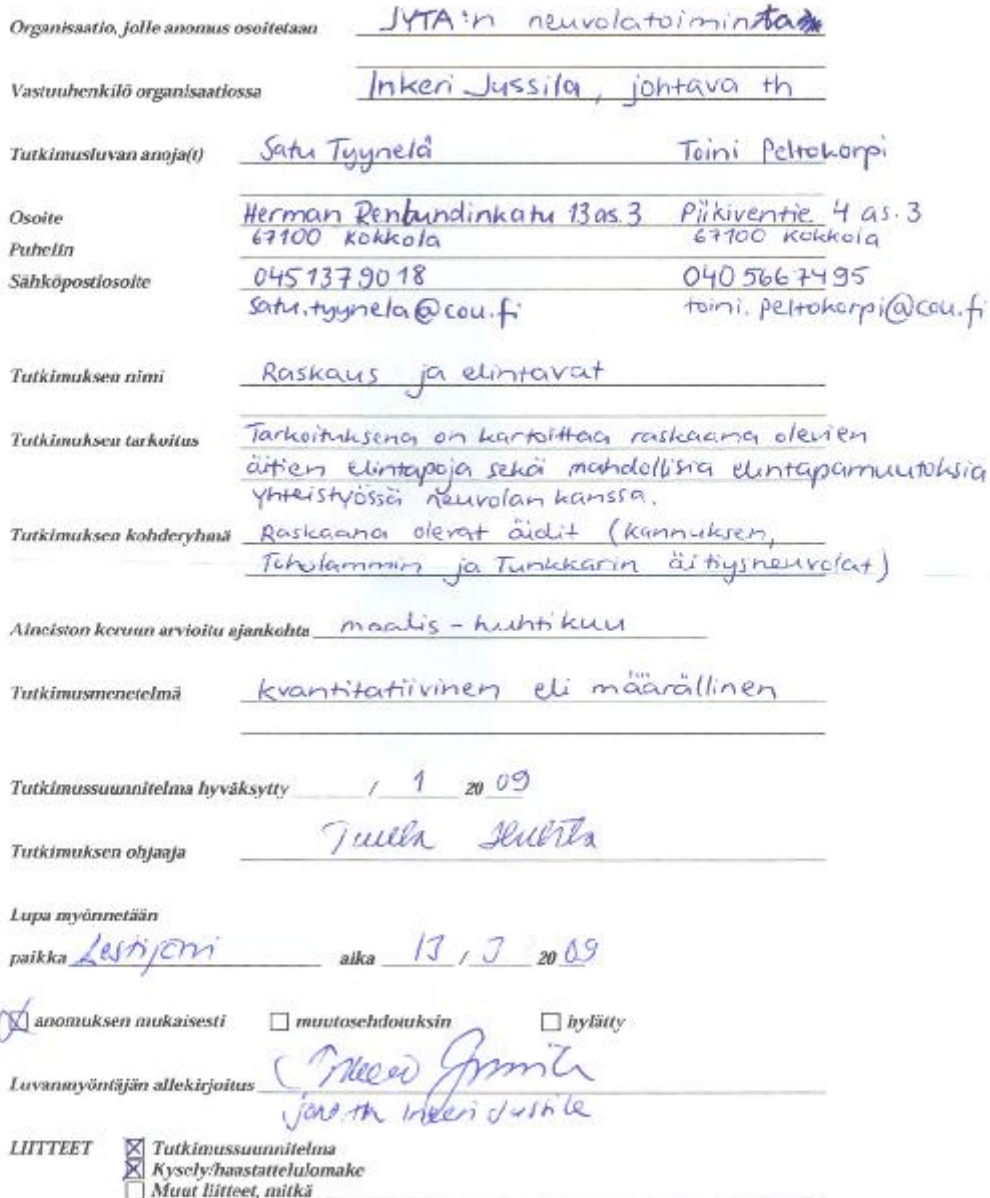 Organisaatio, jolle anomus osoitetaan JYTA:n neuvolatoiminta
Vastuuhenkilö organisaatiossa Inkeri Jussila, johtava th
Tutkimusluvan anoja(t) Satu Tyynelä Toini Peltokorpi
Osoite Herman Renlundinkatu 13 as. 3 Piikiventie 4 as. 3
67100 Kokkola 67100 Kokkola
Puhelin
Sähköpostiosoite 045 137 90 18 040 5667495
satu.tyynela@cou.fi toini.peltokorpi@cou.fi
Tutkimuksen nimi Raskaus ja elintavat
Tutkimuksen tarkoitus Tarkoituksena on kartoittaa raskaana olevien
äitien elintapoja sekä mahdollisia elintapamuutoksia
yhteistyössä neuvolan kanssa.
Tutkimuksen kohderyhmä Raskaana olevat äidit (Kannuksen,
Toholammin ja Tunkkarin äitiysneuvolat)
Aineiston keruun arvioitu ajankohta maalis - huhtikuu
Tutkimusmenetelmä kvantitatiivinen eli määrällinen
Tutkimussuunnitelma hyväksytty / 1 20 09
Tutkimuksen ohjaaja
Lupa myönnetään
paikka Lestijärvi aika 13 / 3 20 09
anomuksen mukaisesti muutosehdotuksin hylätty
Luvanmyöntäjän allekirjoitus
joht. th Inkeri Jussila
LIITTEET Tutkimussuunnitelma
Kysely/haastattelulomake
Muut liitteet, mitkä